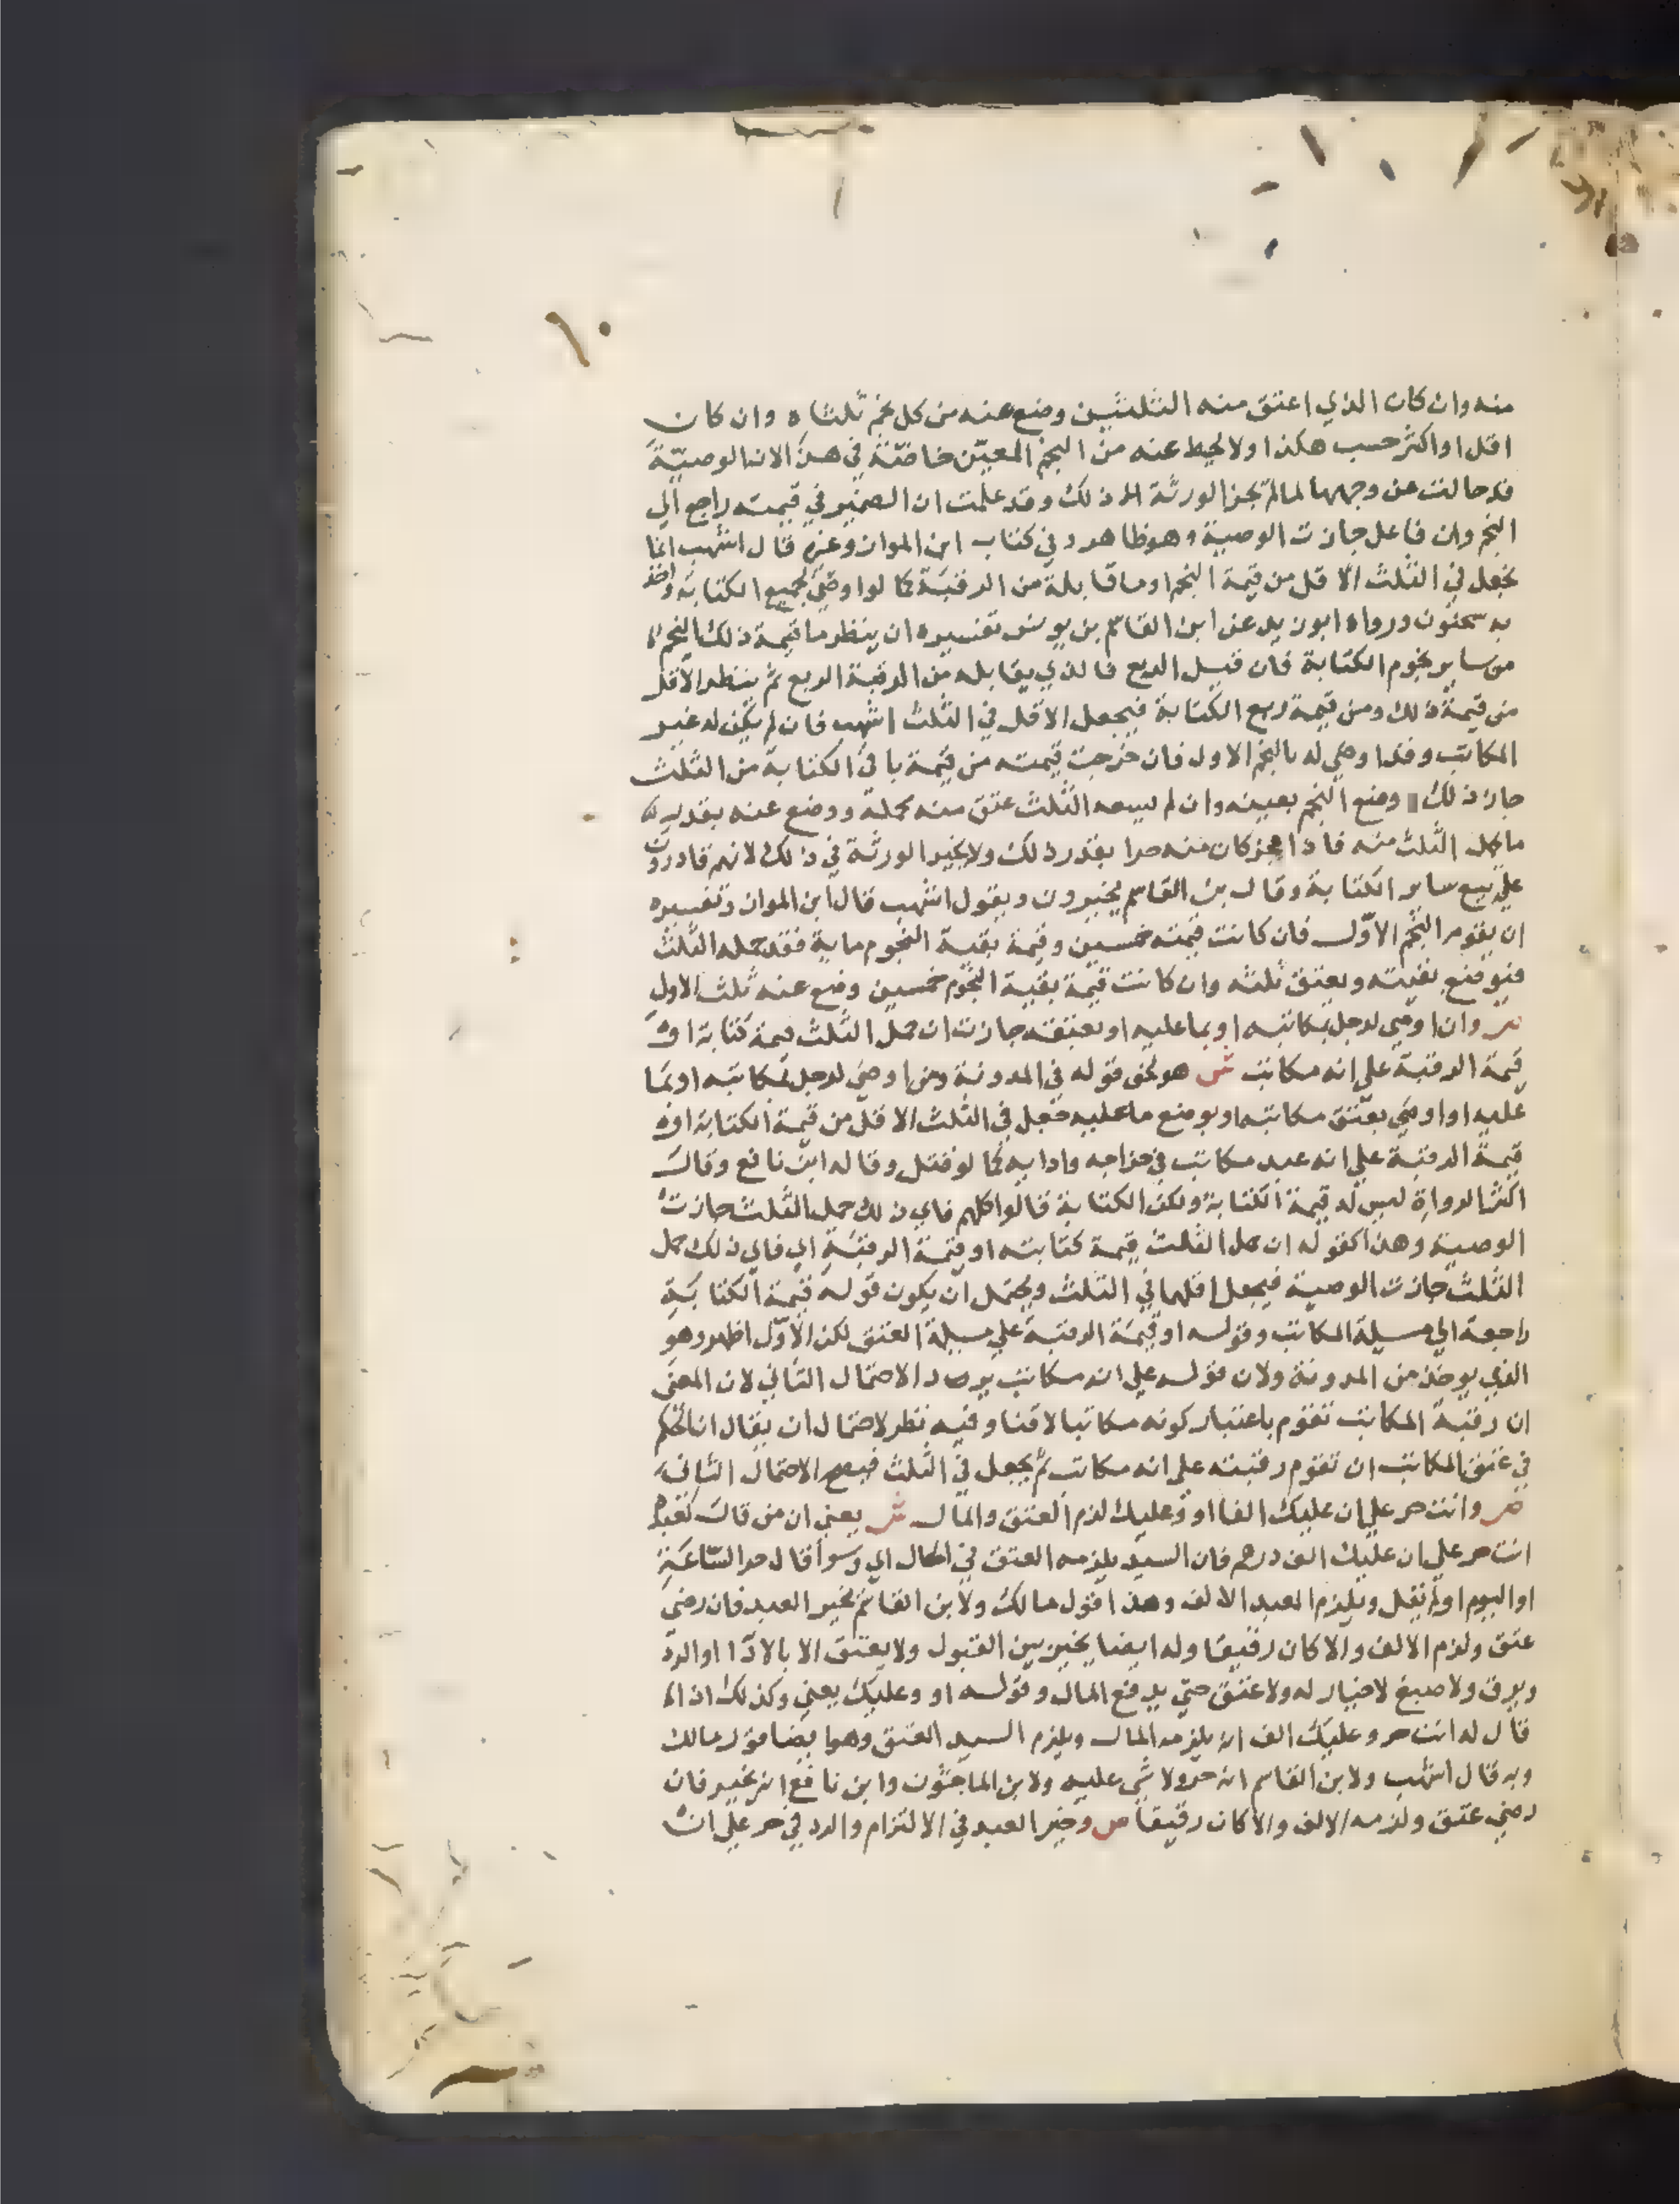 ١٠
منه وان كان الذي اعتق منه الثلثين وضع عنه من كل نجم ثلثاه وان كان
اقل او اكثر حسب هكذا ولا يحط عنه من النجم المعين خاصة في هذا لان الوصية
قد حالت عن وجهها لما لم تجز الورثة ذلك وقد علمت ان الضمير في قيمته راجع الي
النجم وان فاعل جازت الوصية وهو ظاهر وفي كتاب ابن المواز وغيره قال اشهب انما
يجعل في الثلث الاقل من قيمة النجم او ما قابله من الرقبة كما لو اوصي بجميع الكتابة واخذ
به سحنون ورواه ابو زيد عن ابن القاسم بن يونس تفسيره ان ينظر ما قيمة ذلك النجم
من ساير نجوم الكتابة فان قيل الربع فالذي يقابله من الرقبة الربع ثم ينظر الاقل
من قيمة ذلك ومن قيمة ربع الكتابة فيجعل الاقل في الثلث اشهب فان لم يكن له غير
المكاتب وقد اوصي له بالنجم الاول فان خرجت قيمته من قيمة باقي الكتابة من الثلث
جاز ذلك ووضع النجم بعينه وان لم يسعه الثلث عتق منه محمله ووضع عنه بقدر
ما حمل الثلث منه فاذا عجز كان منه حرا بقدر ذلك ولا يخير الورثة في ذلك لانهم قادرون
علي بيع ساير الكتابة وقال بن القاسم يخيرون وبقول اشهب قال ابن المواز وتفسيره
ان يقوم النجم الاول فان كانت قيمته خمسين وقيمة بقية النجوم ماية فقد حمله الثلث
فيوضع بقيته ويعتق ثلثه وان كانت قيمة بقية النجوم خمسين وضع عنه ثلث الاول
ص وان اوصي لرجل بمكاتبه او بما عليه او بعتقه جازت ان حمل الثلث قيمة كتابة او
قيمة الرقبة علي انه مكاتب ش هو نحو قوله في المدونة ومن اوصي لرجل بمكاتبه او بما
عليه او اوصي بعتق مكاتبه او بوضع ما عليه جعل في الثلث الاقل من قيمة الكتابة او
قيمة الرقبة علي انه عبد مكاتب في خراجه وادايه كما لو قتل وقاله ابن نافع وقال
اكثر الرواة ليس له قيمة الكتابة ولكن الكتابة قالوا كلهم فاي ذلك حمل الثلث جازت
الوصية وهذا كقوله ان حمل الثلث قيمة كتابته او قيمة الرقبة اي فاي ذلك حمل
الثلث جازت الوصية فيجعل اقلهما في الثلث ويحتمل ان يكون قوله قيمة الكتابة
راجعة الي مسيلة المكاتب وقوله او قيمة الرقبة علي مسيلة العتق لكن الاول اظهر وهو
الذي يوخذ من المدونة ولان قوله علي انه مكاتب يرد الاحتمال الثاني لان المعني
ان رقبة المكاتب تقوم باعتبار كونه مكاتبا لا قنا وفيه نظر لاحتمال ان يقال ان الحكم
في عتق المكاتب ان تقوم رقبته علي انه مكاتب ثم يجعل في الثلث فيصح الاحتمال الثاني
ص وانت حر علي ان عليك الفا او وعليك لزم العتق والمال ش يعني ان من قال لعبده
انت حر علي ان عليك الف درهم فان السيد يلزمه العتق في الحال اي وسوا قال حر الساعة
او اليوم او لم يقل ويلزم العبد الالف وهذا قول مالك ولابن القاسم يخير العبد فان رضي
عتق ولزم الالف والا كان رقيقا وله ايضا يخير بين القبول ولا يعتق الا بالاداء او الرد
ويرق ولاصبغ لا خيار له ولا عتق حتي يدفع المال وقوله او وعليك يعني وكذلك اذا
قال له انت حر وعليك الف انه يلزمه المال ويلزم السيد العتق وهو ايضا قول مالك
وبه قال اشهب ولابن القاسم انه حر ولا شي عليه ولابن الماجشون وابن نافع انه يخير فان
رضي عتق ولزمه الالف والا كان رقيقا ص وخير العبد في الالتزام والرد في حر علي ان